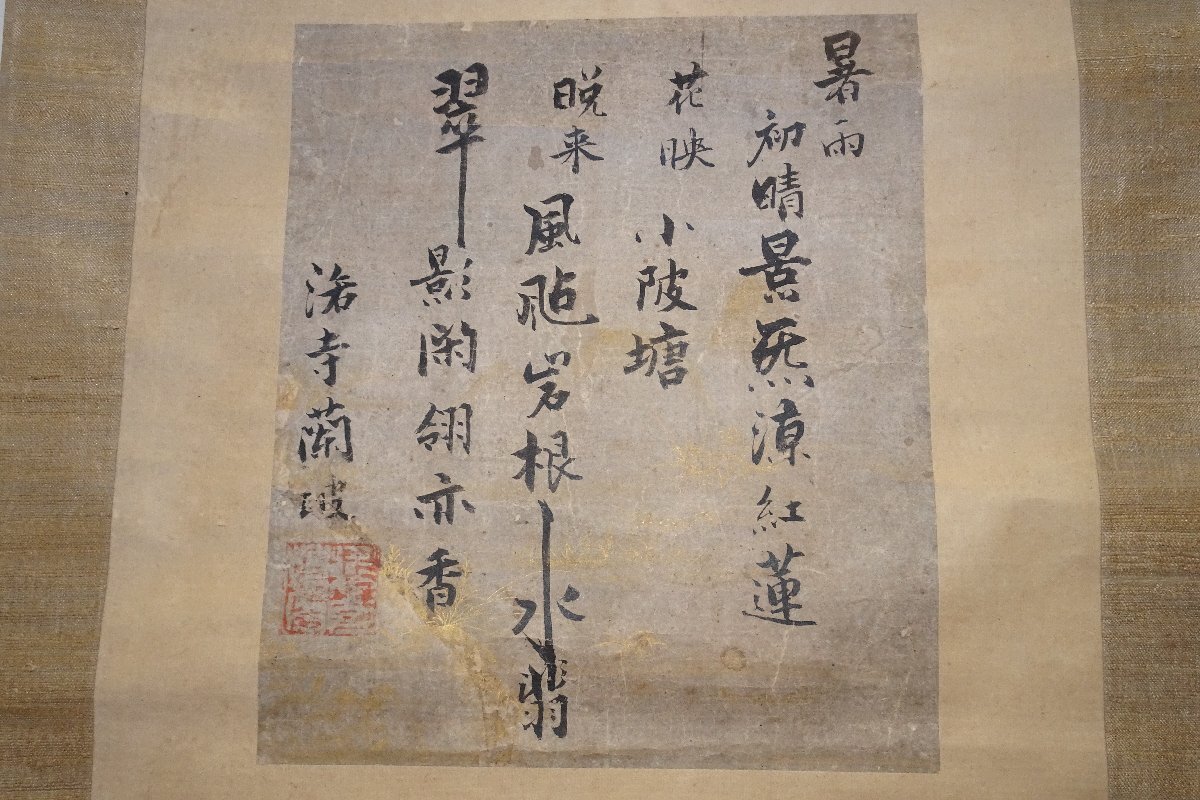 暑雨
初晴景炁凉紅蓮
花映小陂塘
晩来風颭岩根水翡
翠影閑翎亦香
洛寺蘭坡